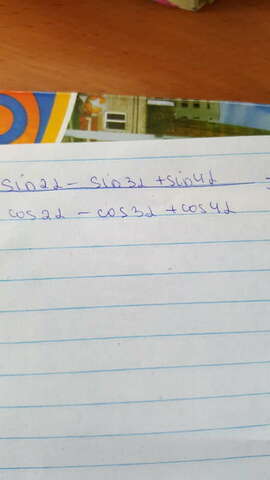 sin2α - sin3α + sin4α =
cos2α - cos3α + cos4α